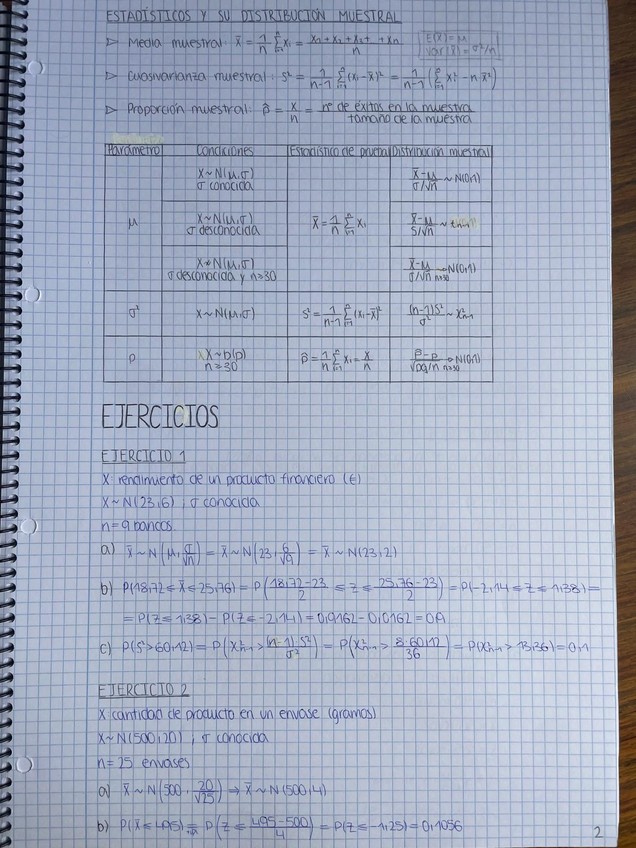 ESTADÍSTICOS Y SU DISTRIBUCIÓN MUESTRAL
▷ Media muestral: x̄ = 1/n Σ xi = x1 + x2 + x3 + ... + xn / n
E(x̄) = μ
Var(x̄) = σ²/n
▷ Cuasivarianza muestral: s² = 1/n-1 Σ (xi - x̄)² = 1/n-1 (Σ xi² - n·x̄²)
▷ Proporción muestral: p̂ = x/n = nº de éxitos en la muestra / tamaño de la muestra
Parámetro Condiciones Estadístico de prueba Distribución muestral
X ~ N(μ,σ)
σ conocida
x̄-μ / σ/√n ~ N(0,1)
μ
X ~ N(μ,σ)
σ desconocida
x̄ = 1/n Σ xi
x̄-μ / S/√n ~ tn-1
σ desconocida y n≥30
x̄-μ / σ/√n → N(0,1) n≥30
σ² X ~ N(μ,σ) S² = 1/n-1 Σ (xi - x̄)² (n-1)S²/σ² ~ χ²n-1
p X ~ b(p)
n≥30
p̂ = 1/n Σ xi = x/n
p̂-p / √pq/n → N(0,1) n≥30
EJERCICIOS
EJERCICIO 1
X rendimiento de un producto financiero (€)
X ~ N(23,6) ; σ conocida
n = 9 bancos
a) x̄ ~ N(μ, σ/√n) = x̄ ~ N(23, 6/√9) = x̄ ~ N(23,2)
b) P(18,72 ≤ x̄ ≤ 25,76) = P(18,72-23 / 2 ≤ Z ≤ 25,76-23 / 2) = P(-2,14 ≤ Z ≤ 1,38) =
= P(Z ≤ 1,38) - P(Z ≤ -2,14) = 0,9162 - 0,0162 = 0,9
c) P(S² > 60,12) = P(χ²n-1 > (n-1)·S² / σ²) = P(χ²n-1 > 8·60,12 / 36) = P(χ²n-1 > 13,36) = 0,1
EJERCICIO 2
X cantidad de producto en un envase (gramos)
X ~ N(500,20) ; σ conocida
n = 25 envases
a) x̄ ~ N(500, 20/√25) → x̄ ~ N(500,4)
b) P(x̄ ≤ 495) = P(Z ≤ 495-500 / 4) = P(Z ≤ -1,25) = 0,1056
2